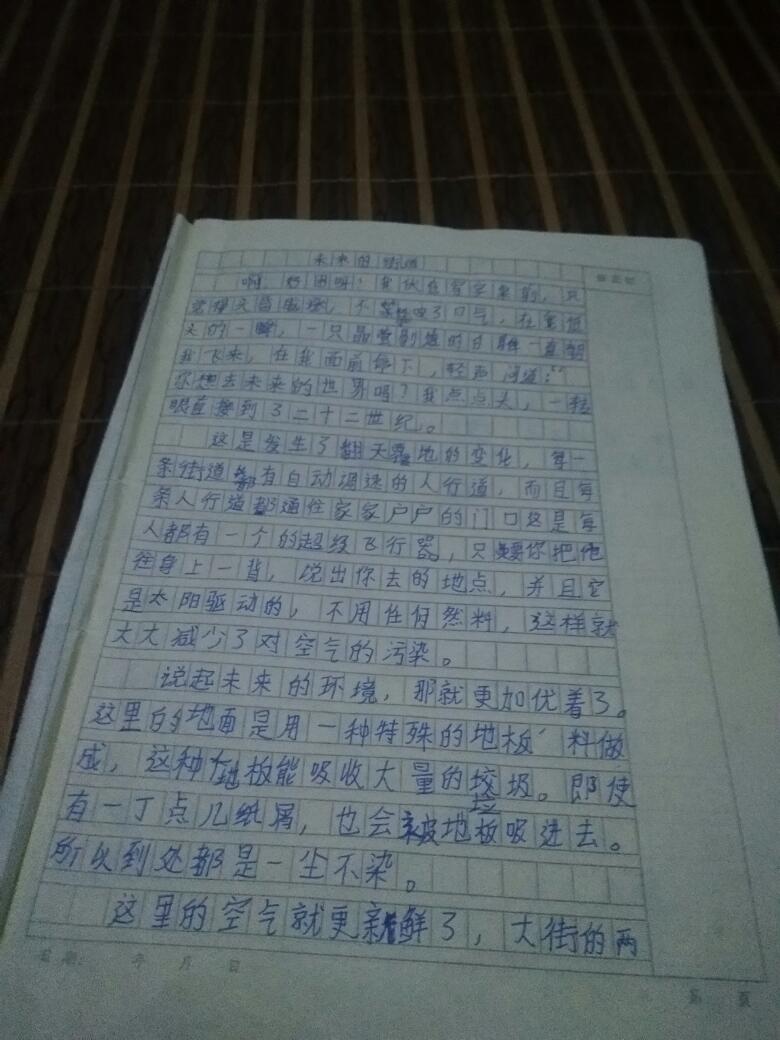 未来的街道
啊，好困呀！我伏在写字桌前，只
觉得天昏地暗，不禁吸了口气，在望
天的一瞬，一只晶莹剔透的白 直朝
我飞来，在我面前停下，轻声问道：“
你想去未来的世界吗？我点点头，一转
眼直接到了二十二世纪。
这是发生了翻天覆地的变化，每一
条街道都有自动调速的人行道，而且每
条人行道都通往家家户户的门口这是每
人都有一个的超级飞行器，只要你把他
往身上一背，说出你去的地点，并且它
是太阳驱动的，不用任何然料，这样就
大大减少了对空气的污染。
说起未来的环境，那就更加优着了。
这里的地面是用一种特殊的地板料做
成，这种地板能吸收大量的垃圾。即使
有一丁点儿纸屑，也会被地板吸进去。
所以到处都是一尘不染。
这里的空气就更新鲜了，大街的两
日期： 年 月 日
第 页